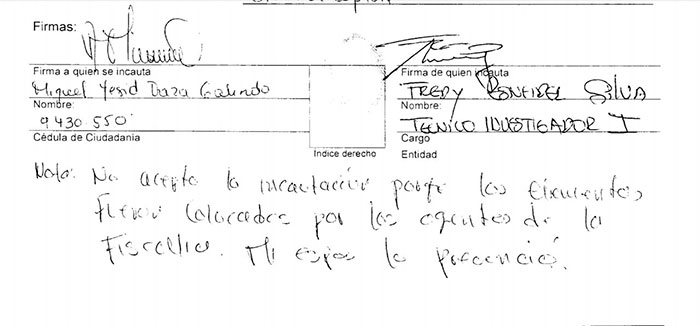 Firmas:
Firma a quien se incauta
Firma de quien incauta
Miguel Yesid Daza Galindo
FREDY BONFIDEL SILVA
Nombre:
Nombre:
9 430 550
TECNICO INVESTIGADOR I
Cédula de Ciudadanía
Cargo
Indice derecho
Entidad
Nota: No acepto la incautación porqe los
Fueron colocados por los agentes de la
Fiscalia. Mi esposa lo presenció.